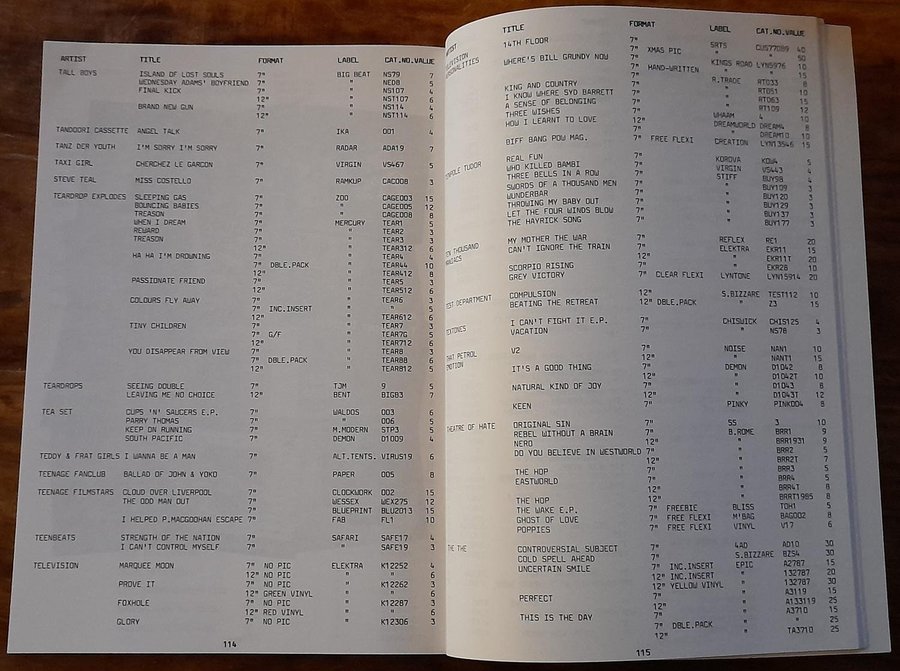 ARTIST TITLE FORMAT LABEL CAT.NO.VALUE
TALL BOYS ISLAND OF LOST SOULS 7" BIG BEAT NS79 7
WEDNESDAY ADAMS' BOYFRIEND 7" " NED8 5
FINAL KICK 7" " NS107 4
12" " NST107 6
BRAND NEW GUN 7" " NS114 4
12" " NST114 6
TANDOORI CASSETTE ANGEL TALK 7" IKA 001 4
TANZ DER YOUTH I'M SORRY I'M SORRY 7" RADAR ADA19 7
TAXI GIRL CHERCHEZ LE GARCON 7" VIRGIN VS467 5
STEVE TEAL MISS COSTELLO 7" RAMKUP CAC008 3
TEARDROP EXPLODES SLEEPING GAS 7" ZOO CAGE003 15
BOUNCING BABIES 7" " CAGE005 12
TREASON 7" " CAGE008 8
WHEN I DREAM 7" MERCURY TEAR1 5
REWARD 7" " TEAR2 3
TREASON 7" " TEAR3 3
12" " TEAR312 6
HA HA I'M DROWNING 7" " TEAR4 4
7" DBLE.PACK " TEAR44 10
12" " TEAR412 8
PASSIONATE FRIEND 7" " TEAR5 3
12" " TEAR512 6
COLOURS FLY AWAY 7" " TEAR6 3
7" INC.INSERT "
12" " TEAR612 6
TINY CHILDREN 7" " TEAR7 3
7" G/F " TEAR7G
12" " TEAR712 6
YOU DISAPPEAR FROM VIEW 7" " TEAR8 3
7" DBLE.PACK " TEAR88 6
12" " TEAR812 5
TEARDROPS SEEING DOUBLE 7" TJM 9 5
LEAVING ME NO CHOICE 12" BENT BIGB3 7
TEA SET CUPS 'N' SAUCERS E.P. 7" WALDOS 003 6
PARRY THOMAS 7" " 006 5
KEEP ON RUNNING 7" M.MODERN STP3 5
SOUTH PACIFIC 7" DEMON D1009 4
TEDDY & FRAT GIRLS I WANNA BE A MAN 7" ALT.TENTS. VIRUS19 6
TEENAGE FANCLUB BALLAD OF JOHN & YOKO 7" PAPER 005 8
TEENAGE FILMSTARS CLOUD OVER LIVERPOOL 7" CLOCKWORK 002 15
THE ODD MAN OUT 7" WESSEX WEX275 12
7" BLUEPRINT BLU2013 15
I HELPED P.MAGOOHAN ESCAPE 7" FAB FL1 10
TEENBEATS STRENGTH OF THE NATION 7" SAFARI SAFE17 4
I CAN'T CONTROL MYSELF 7" " SAFE19 3
TELEVISION MARQUEE MOON 7" NO PIC ELEKTRA K12252 4
12" NO PIC " " 6
PROVE IT 7" NO PIC " K12262 3
12" GREEN VINYL " " 6
FOXHOLE 7" NO PIC " K12287 3
12" RED VINYL " " 6
GLORY 7" NO PIC " K12306 3
114
ARTIST TITLE FORMAT LABEL CAT.NO.VALUE
14TH FLOOR 7" SRTS 40
7" XMAS PIC " 50
WHERE'S BILL GRUNDY NOW 7" KINGS ROAD LYN5976 10
7" HAND-WRITTEN " " 15
KING AND COUNTRY 7" R.TRADE RT033 8
I KNOW WHERE SYD BARRETT 7" " RT051 10
A SENSE OF BELONGING 7" " RT063 15
THREE WISHES 7" " RT109 12
HOW I LEARNT TO LOVE 12" WHAAM 4
DREAMWORLD DREAM4 8
BIFF BANG POW MAG. 7" FREE FLEXI CREATION LYN13546 15
REAL FUN 7" KOROVA KOW4 5
WHO KILLED BAMBI 7" VIRGIN VS443
THREE BELLS IN A ROW 7" STIFF BUY98
SWORDS OF A THOUSAND MEN 7" " BUY109 3
WUNDERBAR 7" " BUY120 3
THROWING MY BABY OUT 7" " BUY129 3
LET THE FOUR WINDS BLOW 7" " BUY137 3
THE HAYRICK SONG 7" " BUY177 3
TEN THOUSAND MANIACS MY MOTHER THE WAR 12" REFLEX RE1 20
CAN'T IGNORE THE TRAIN 7" ELEKTRA EKR11 15
12" " EKR11T 20
SCORPIO RISING 7" " EKR28 10
GREY VICTORY 7" CLEAR FLEXI LYNTONE LYN15914 20
TEST DEPARTMENT COMPULSION 12" S.BIZZARE TEST112 10
BEATING THE RETREAT 12" DBLE.PACK " Z3 15
TEXTONES I CAN'T FIGHT IT E.P. 7" CHISWICK CHIS125 4
VACATION 7" " NS78 3
THAT PETROL EMOTION V2 7" NOISE NAN1 10
12" " NANT1 15
IT'S A GOOD THING 7" DEMON D1042 8
12" " D1042T 10
NATURAL KIND OF JOY 7" " D1043 8
12" " D1043T 12
KEEN 7" PINKY PINK004 8
THEATRE OF HATE ORIGINAL SIN 7" SS 3 10
REBEL WITHOUT A BRAIN 7" B.ROME BRR1 9
NERO 12" " BRR1931 9
DO YOU BELIEVE IN WESTWORLD 7" " BRR2 5
12" " BRR2T 7
THE HOP 7" " BRR3 5
EASTWORLD 7" " BRR4 5
12" " BRR4T 8
THE HOP 12" " BRRT1985 8
THE WAKE E.P. 7" FREEBIE BLISS TOH1 5
GHOST OF LOVE 7" FREE FLEXI M'BAG BAG002 8
POPPIES 7" FREE FLEXI VINYL V17 6
THE THE CONTROVERSIAL SUBJECT 7" 4AD AD10 30
COLD SPELL AHEAD 7" S.BIZZARE BZS4 30
UNCERTAIN SMILE 7" INC.INSERT EPIC A2787 15
12" INC.INSERT " 132787 20
12" YELLOW VINYL " 132787 30
PERFECT 7" " A3119 15
12" " A133119 25
THIS IS THE DAY 7" " A3710 15
7" DBLE.PACK " " 25
12" " TA3710 25
115